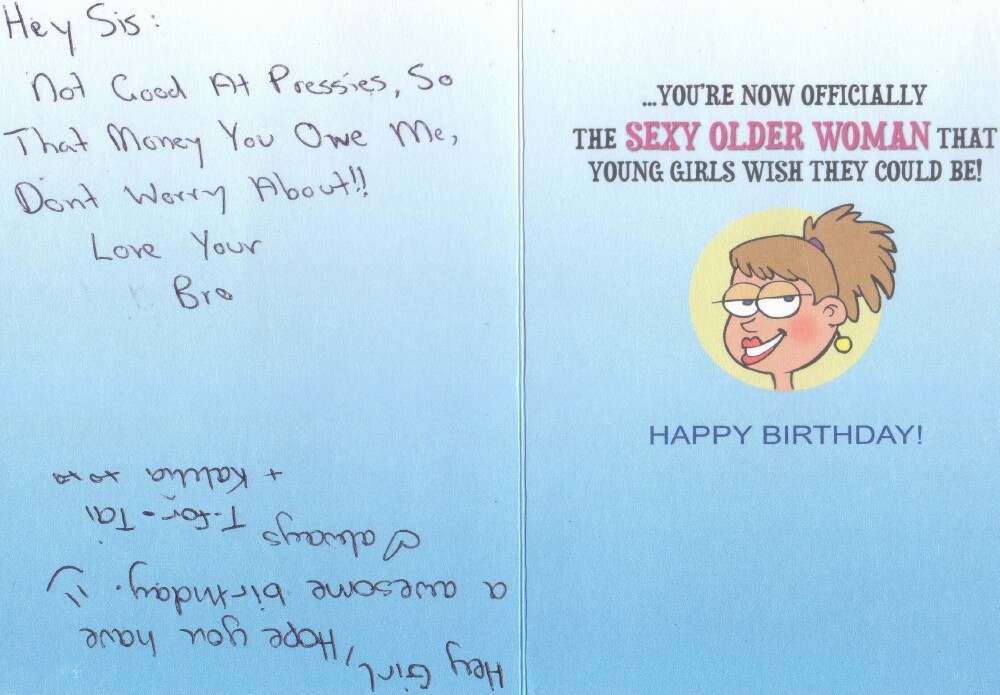 Hey Sis:
Not Good At Pressies, So
That Money You Owe Me,
Dont Worry About!!
Love Your
Bro
Hey Girl,
Hope you have
a awesome birthday. :)
♡ always
T-for-Tai
+ xoxo
...YOU'RE NOW OFFICIALLY
THE SEXY OLDER WOMAN THAT
YOUNG GIRLS WISH THEY COULD BE!
HAPPY BIRTHDAY!